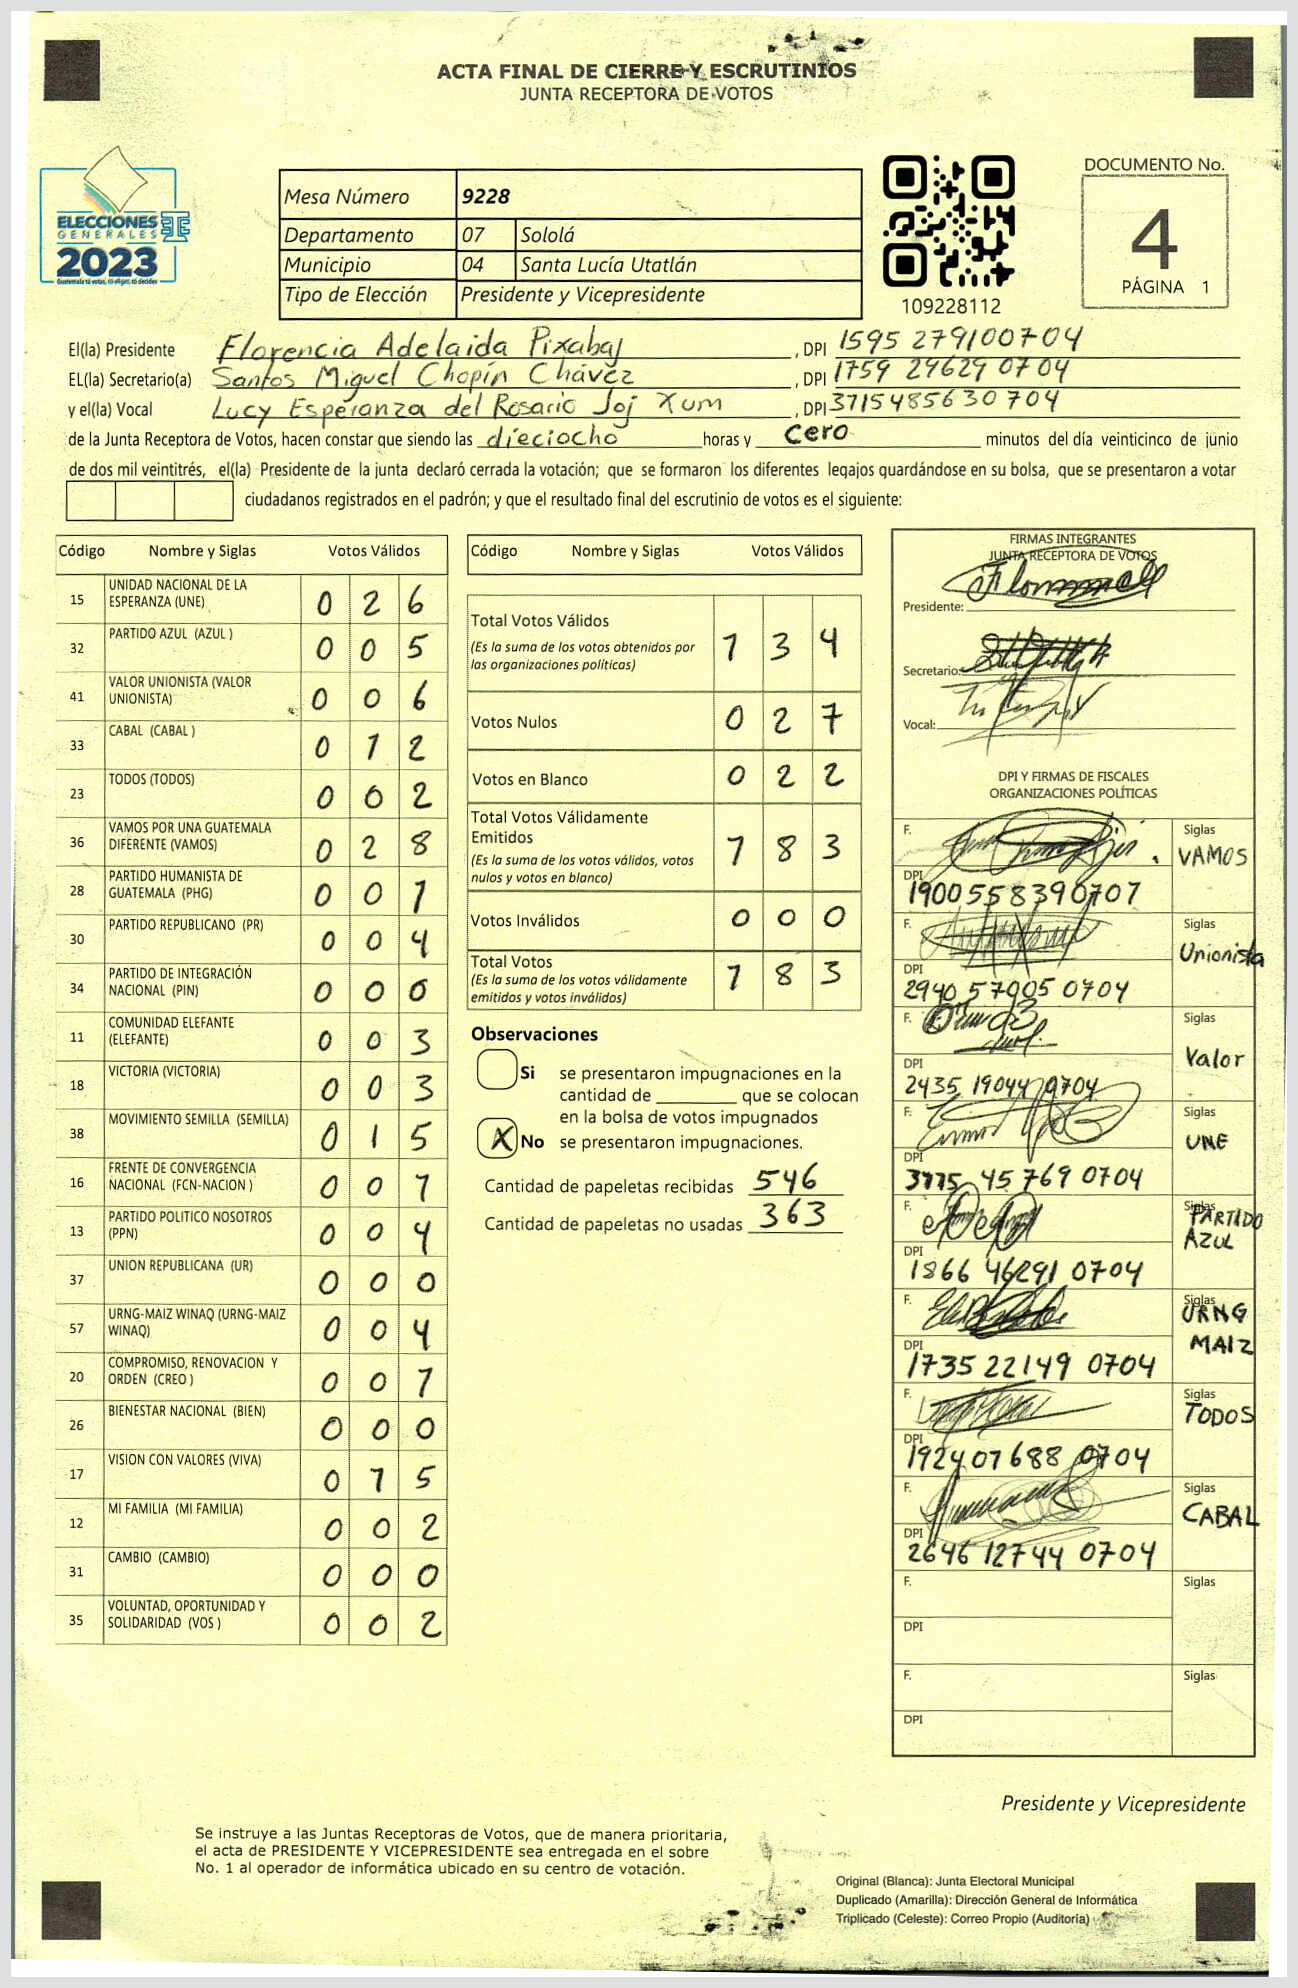 ACTA FINAL DE CIERRE Y ESCRUTINIOS
JUNTA RECEPTORA DE VOTOS
ELECCIONES
GENERALES
2023
Guatemala tú votas, tú eliges, tú decides
Mesa Número 9228
Departamento 07 Sololá
Municipio 04 Santa Lucía Utatlán
Tipo de Elección Presidente y Vicepresidente
109228112
DOCUMENTO No.
4
PÁGINA 1
El(la) Presidente Florencia Adelaida Pixabaj, DPI 1595 27910 0704
EL(la) Secretario(a) Santos Miguel Chopín Chávez, DPI 1759 29629 0704
y el(la) Vocal Lucy Esperanza del Rosario Joj Xum, DPI 3715 48563 0704
de la Junta Receptora de Votos, hacen constar que siendo las dieciocho horas y cero minutos del día veinticinco de junio
de dos mil veintitrés, el(la) Presidente de la junta declaró cerrada la votación; que se formaron los diferentes legajos guardándose en su bolsa, que se presentaron a votar
ciudadanos registrados en el padrón; y que el resultado final del escrutinio de votos es el siguiente:
Código Nombre y Siglas Votos Válidos
15 UNIDAD NACIONAL DE LA ESPERANZA (UNE) 0 2 6
32 PARTIDO AZUL (AZUL ) 0 0 5
41 VALOR UNIONISTA (VALOR UNIONISTA) 0 0 6
33 CABAL (CABAL ) 0 1 2
23 TODOS (TODOS) 0 0 2
36 VAMOS POR UNA GUATEMALA DIFERENTE (VAMOS) 0 2 8
28 PARTIDO HUMANISTA DE GUATEMALA (PHG) 0 0 1
30 PARTIDO REPUBLICANO (PR) 0 0 4
34 PARTIDO DE INTEGRACIÓN NACIONAL (PIN) 0 0 0
11 COMUNIDAD ELEFANTE (ELEFANTE) 0 0 3
18 VICTORIA (VICTORIA) 0 0 3
38 MOVIMIENTO SEMILLA (SEMILLA) 0 1 5
16 FRENTE DE CONVERGENCIA NACIONAL (FCN-NACION ) 0 0 1
13 PARTIDO POLITICO NOSOTROS (PPN) 0 0 4
37 UNION REPUBLICANA (UR) 0 0 0
57 URNG-MAIZ WINAQ (URNG-MAIZ WINAQ) 0 0 4
20 COMPROMISO, RENOVACION Y ORDEN (CREO ) 0 0 1
26 BIENESTAR NACIONAL (BIEN) 0 0 0
17 VISION CON VALORES (VIVA) 0 1 5
12 MI FAMILIA (MI FAMILIA) 0 0 2
31 CAMBIO (CAMBIO) 0 0 0
35 VOLUNTAD, OPORTUNIDAD Y SOLIDARIDAD (VOS ) 0 0 2
Código Nombre y Siglas Votos Válidos
Total Votos Válidos 1 3 4
(Es la suma de los votos obtenidos por
las organizaciones políticas)
Votos Nulos 0 2 7
Votos en Blanco 0 2 2
Total Votos Válidamente
Emitidos 1 8 3
(Es la suma de los votos válidos, votos
nulos y votos en blanco)
Votos Inválidos 0 0 0
Total Votos 1 8 3
(Es la suma de los votos válidamente
emitidos y votos inválidos)
Observaciones
Si se presentaron impugnaciones en la
cantidad de ________ que se colocan
en la bolsa de votos impugnados
X No se presentaron impugnaciones.
Cantidad de papeletas recibidas 546
Cantidad de papeletas no usadas 363
FIRMAS INTEGRANTES
JUNTA RECEPTORA DE VOTOS
Presidente:
Secretario:
Vocal:
DPI Y FIRMAS DE FISCALES
ORGANIZACIONES POLÍTICAS
F. Siglas VAMOS
DPI 1900 55839 0707
F. Siglas Unionista
DPI 2940 57005 0704
F. Siglas Valor
DPI 2435 19044 0704
F. Siglas UNE
DPI 3775 45769 0704
F. Siglas PARTIDO AZUL
DPI 1866 46291 0704
F. Siglas URNG MAIZ
DPI 1735 22149 0704
F. Siglas TODOS
DPI 1924 07688 0704
F. Siglas CABAL
DPI 2646 12744 0704
F. Siglas
DPI
F. Siglas
DPI
Presidente y Vicepresidente
Se instruye a las Juntas Receptoras de Votos, que de manera prioritaria,
el acta de PRESIDENTE Y VICEPRESIDENTE sea entregada en el sobre
No. 1 al operador de informática ubicado en su centro de votación.
Original (Blanca): Junta Electoral Municipal
Duplicado (Amarilla): Dirección General de Informática
Triplicado (Celeste): Correo Propio (Auditoría)